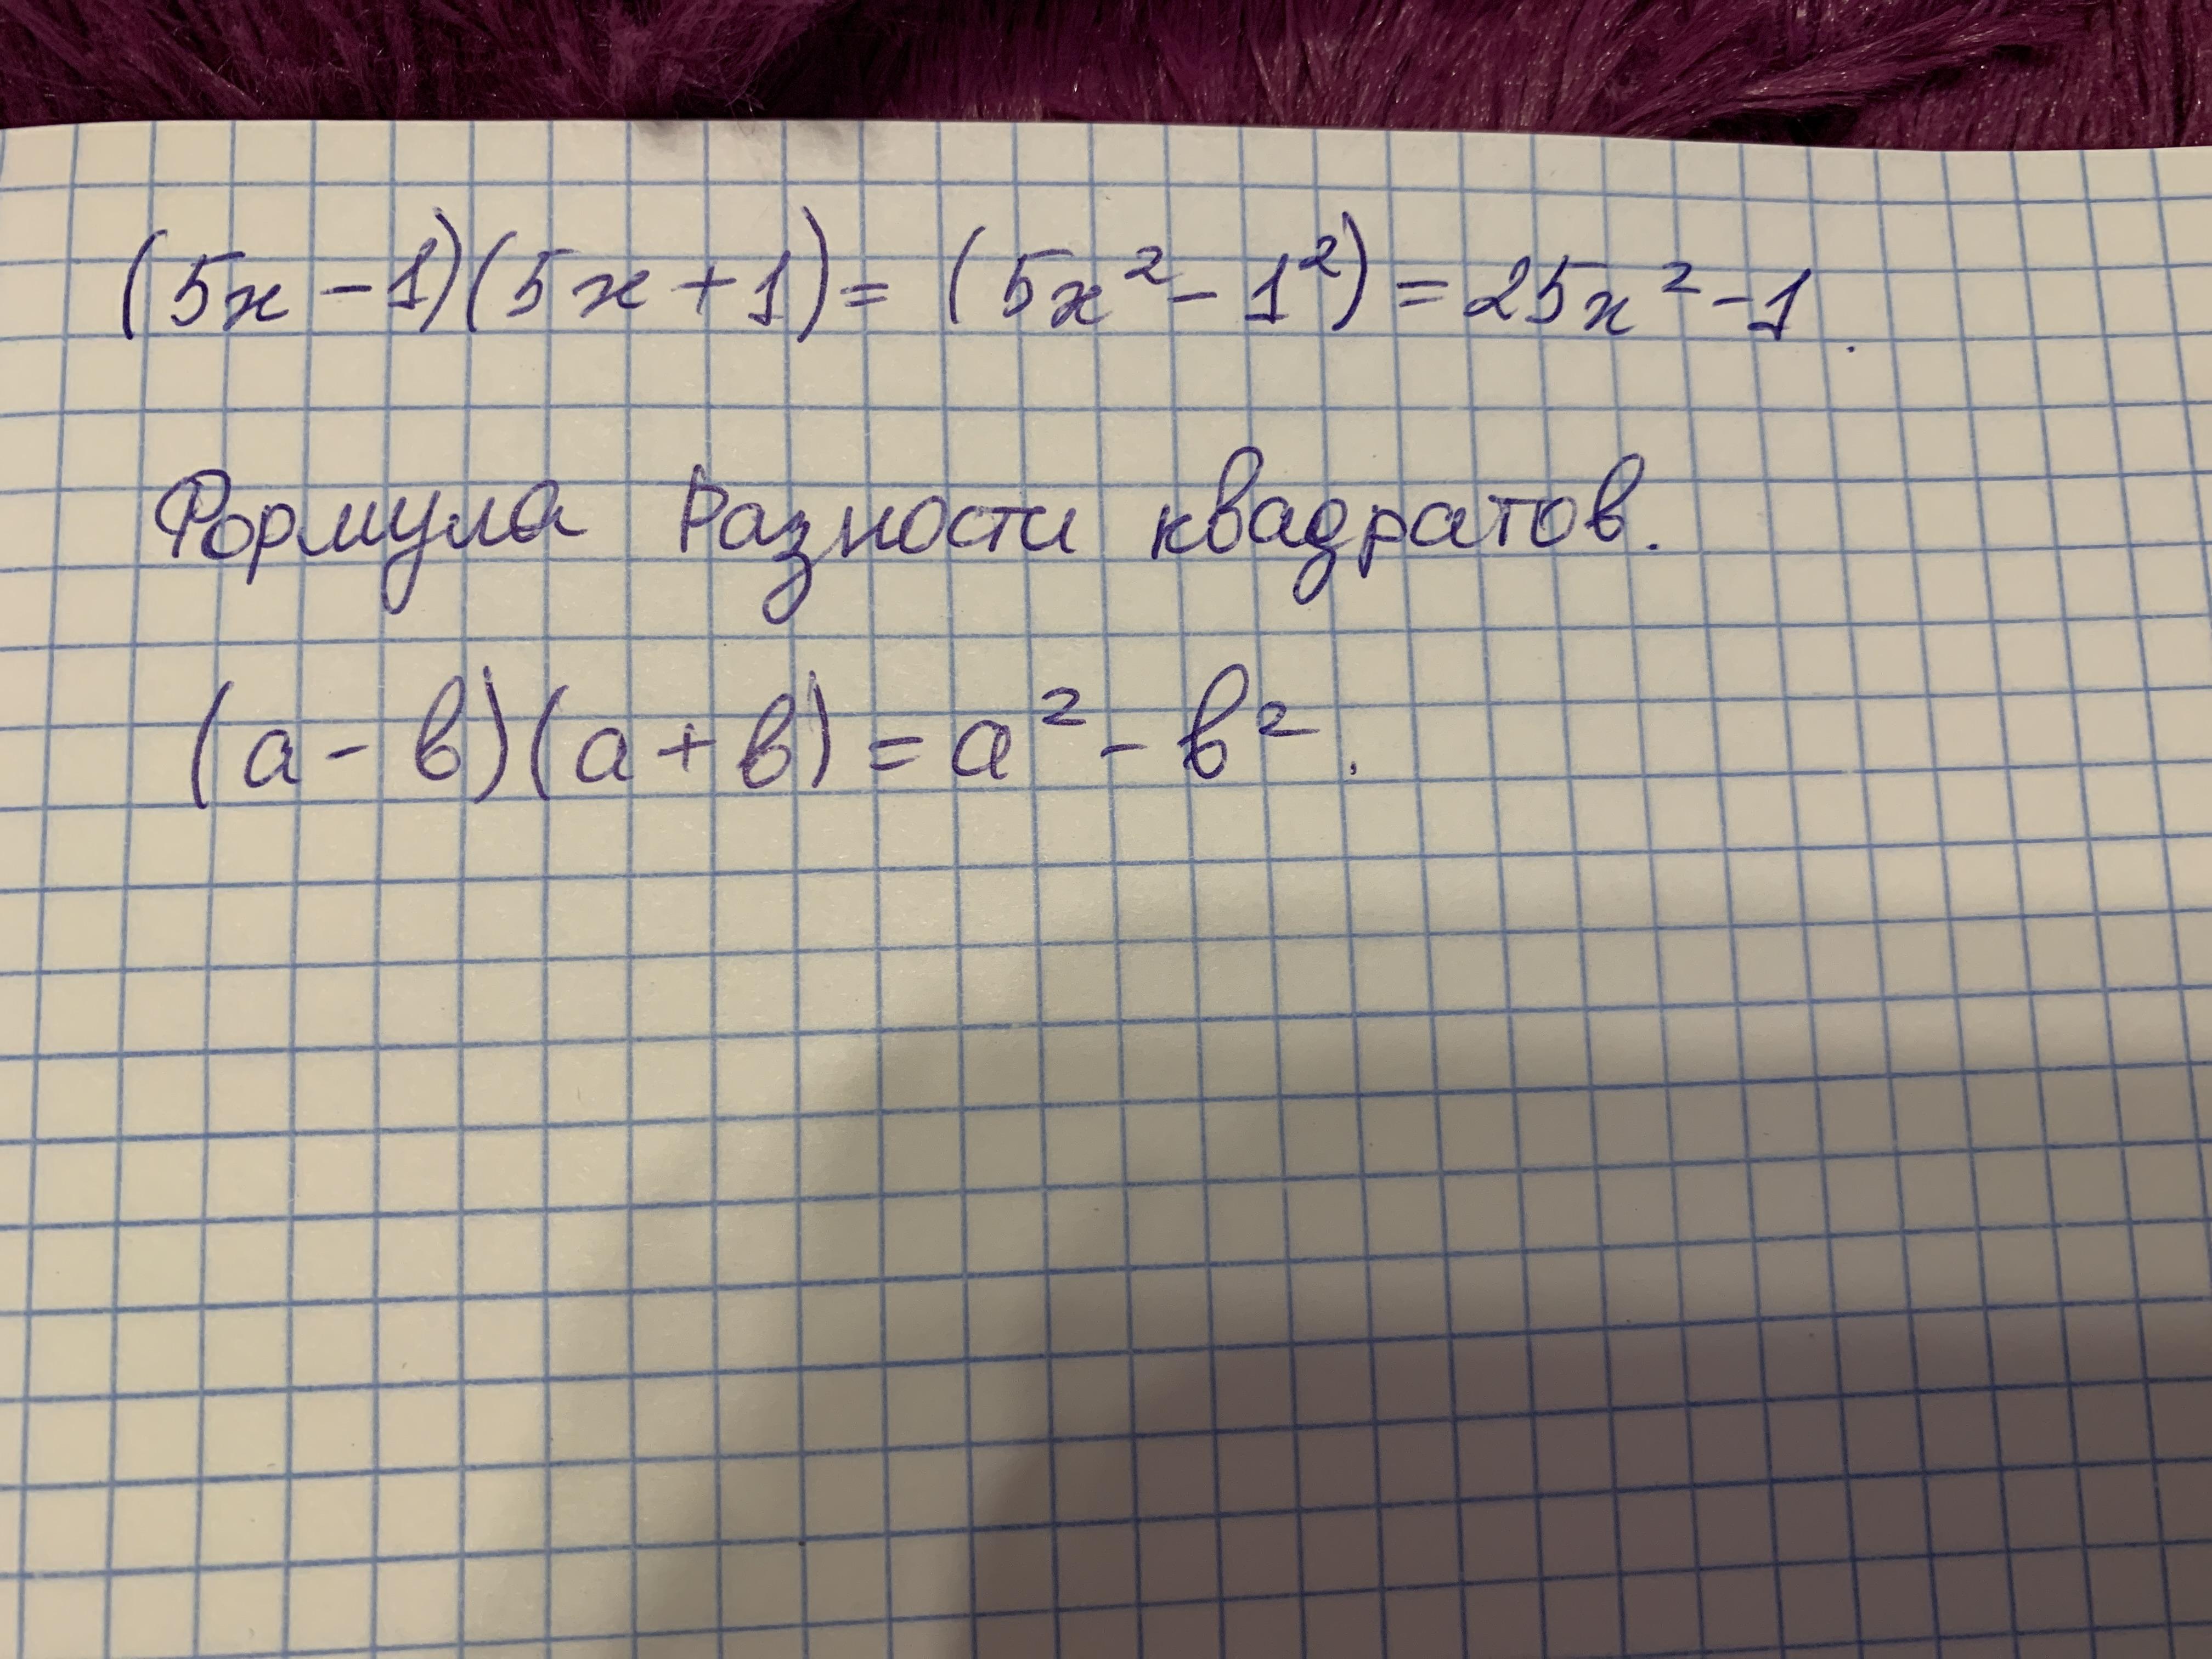 (5x-1)(5x+1)= (5x²-1²)=25x²-1.
Формула Разности квадратов.
(а-в)(а+в)=а²-в².